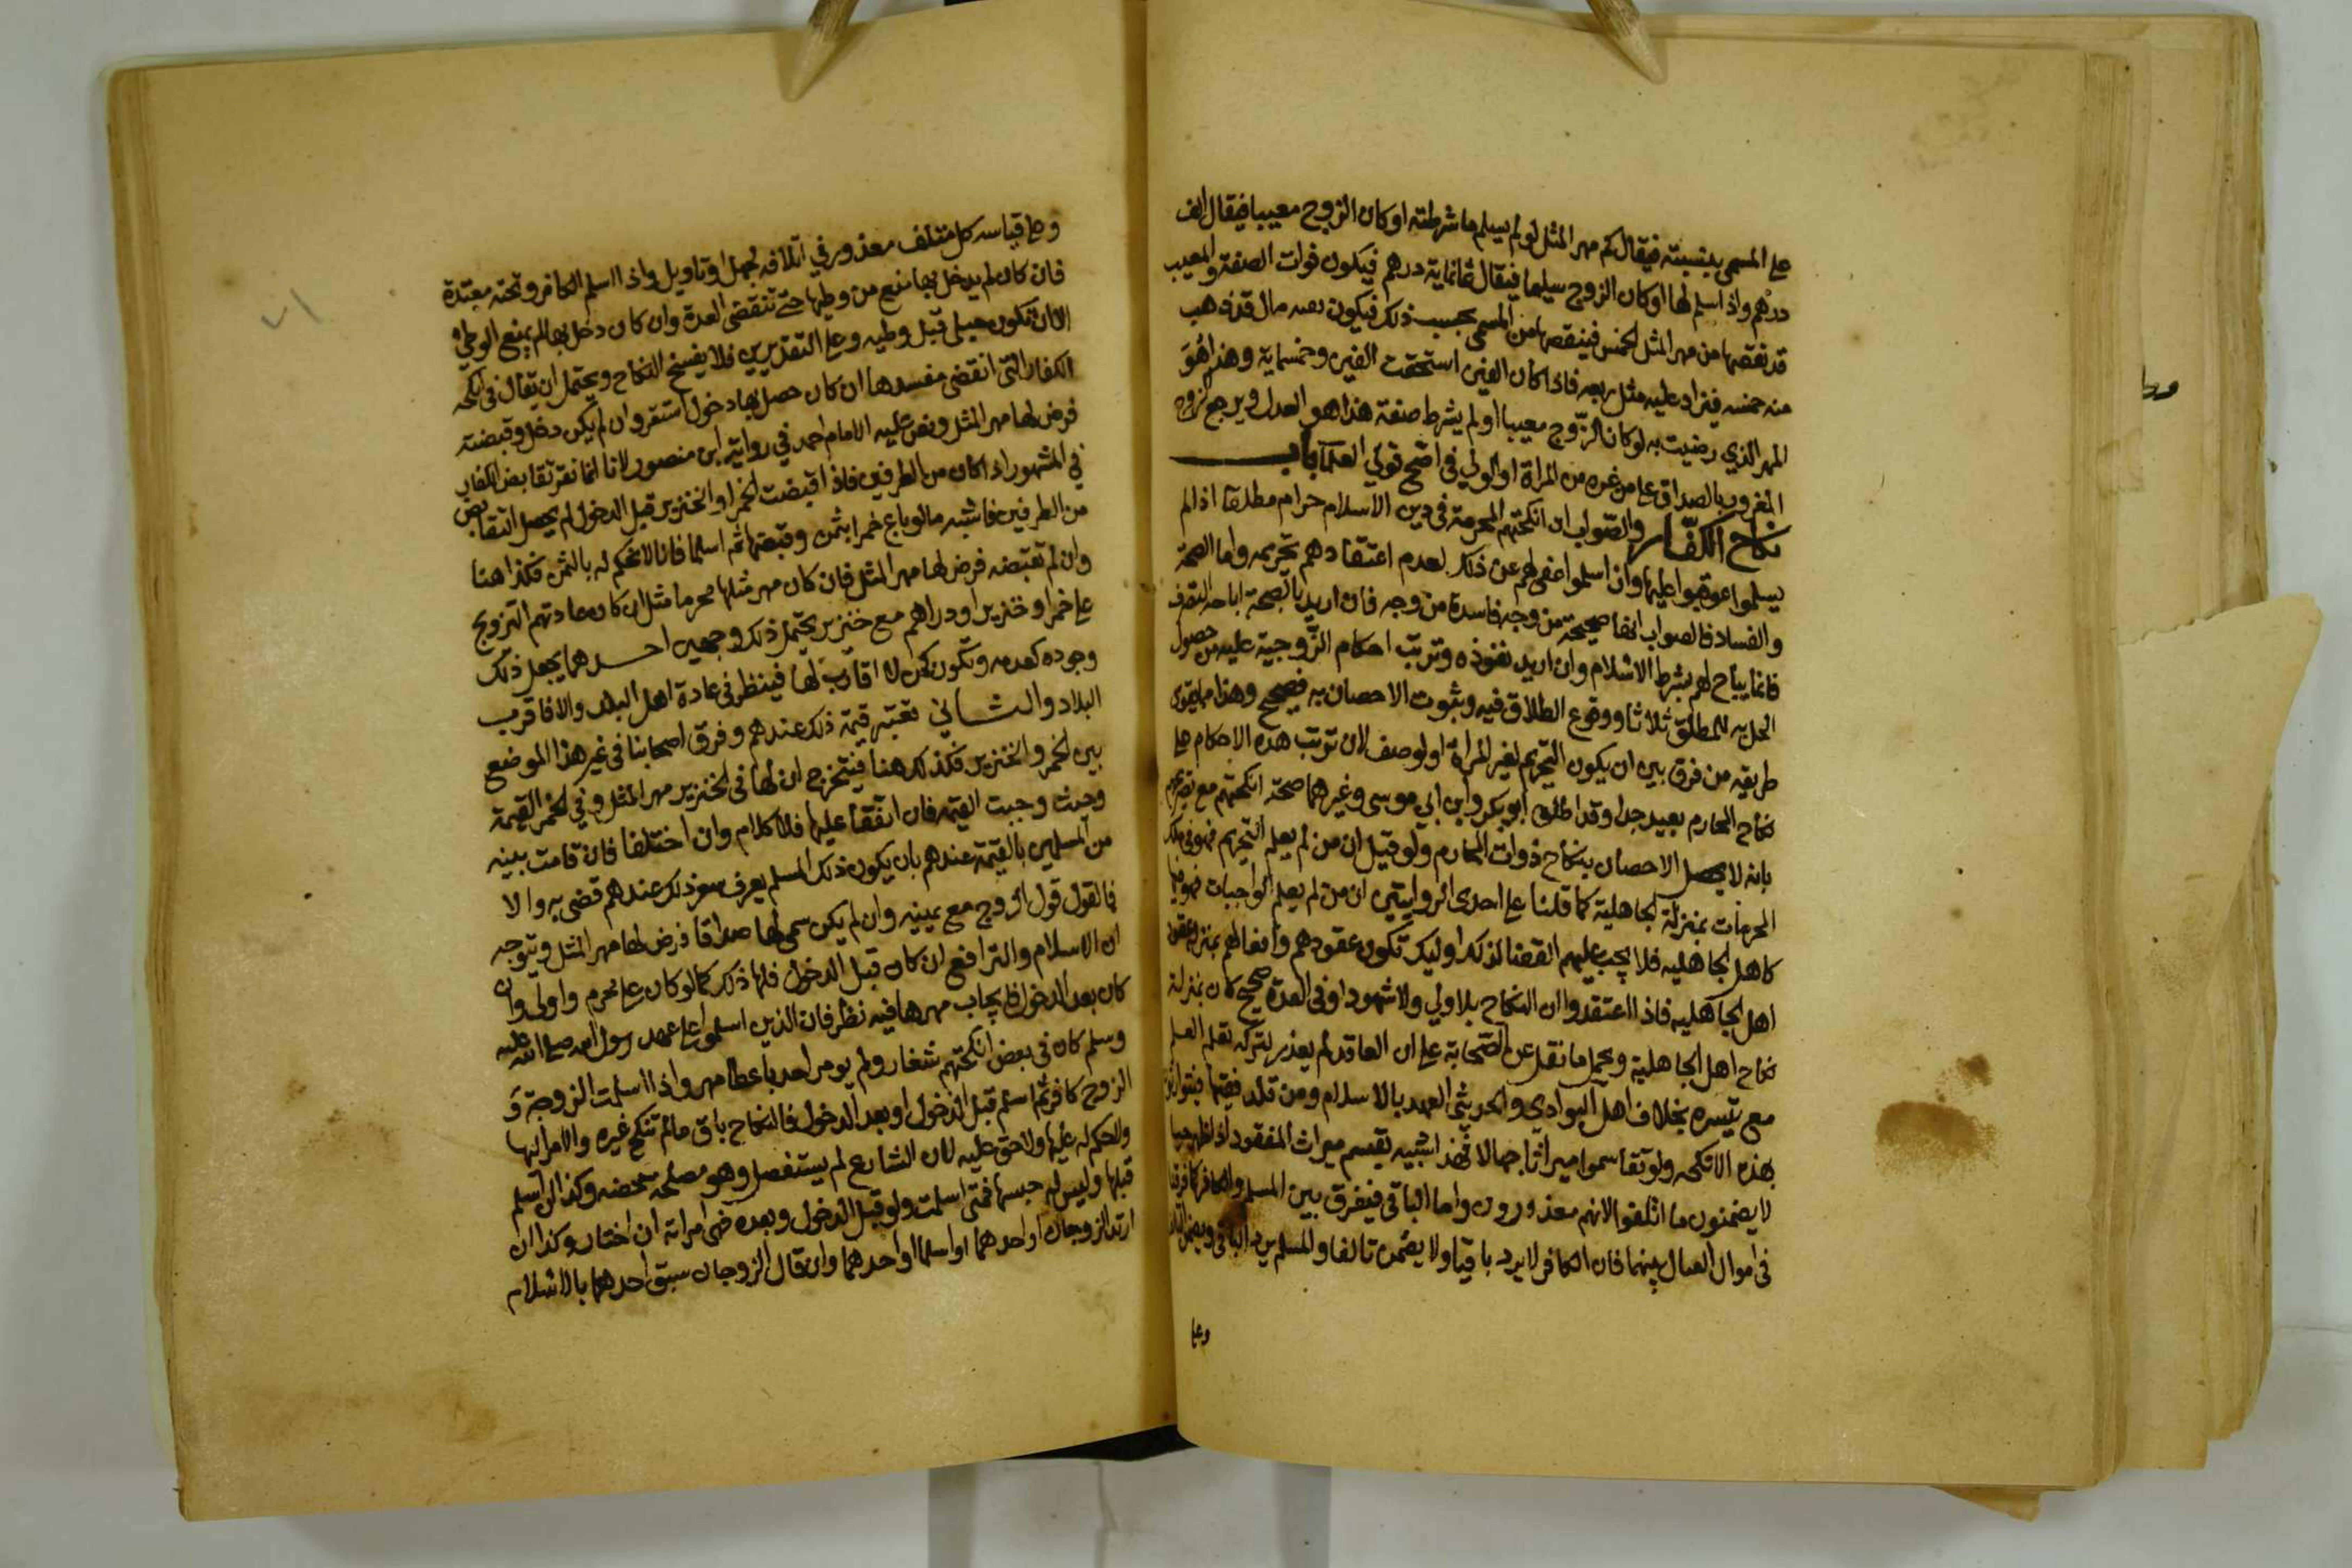 على المسمى بنسبته فيقال كم مهر المثل لو لم يسلم ما شرطته او كان الزوج معيبا فيقال الف
درهم واذا سلم لها او كان الزوج سليما فيقال ثمانماية درهم فيكون فوات الصفة والعيب
قد نقصها من مهر المثل الخمس فينقصها من المسمى بحسب ذلك فيكون بعه مال قد ذهب
منه خمسه فيزاد عليه مثل ربعه فاذا كان الفين استحقت الفين وخمسماية وهذا هُوَ
المهر الذي رضيت به لو كان الزّوج معيبا او لم يشرط صفة هذا هو العدل ويرجع الزوج
المغرور بالصداق على من غره من المراة او الولي في اصح قولي العلمآ باب
نكاح الكفّار والصّواب ان انكحتهم المحرمة في دين الاسلام حرام مطلقا اذا لم
يسلموا عوقبوا عليها وان اسلموا عفى لهم عن ذلك لعدم اعتقادهم تحريمه واما الصحة
والفساد فالصواب انها صحيحة من وجه فاسدة من وجه فان اريد بالصحة اباحة التصرف
فانما يباح لهم بشرط الاسلام وان اريد نفوذه وترتب احكام الزّوجية عليه من حصول
الحل به للمطلق ثلاثا ووقوع الطلاق فيه وثبوت الاحصان به فصحيح وهذا مما يقوى
طريقه من فرق بين ان يكون التحريم لغير المراة او لوصف لان ترتب هذه الاحكام على
نكاح المحارم بعيد جدا وقد اطلق ابو بكر وابن ابي موسى وغيرهما صحة انكحتهم مع تصريحهم
بانه لا يحصل الاحصان بنكاح ذوات المحارم ولو قيل ان من لم يعلم التحريم فهو في ملك
المحرمات بمنزلة الجاهلية كما قلنا على احدى الروايتين ان من لم يعلم الواجبات فهو فيها
كاهل الجاهليه فلا يجب عليهم القضا لذلك اوليك تكون عقودهم وافعالهم بمنزلة عقود
اهل الجاهليه فاذا اعتقدوا ان النكاح بلا ولي ولا شهود او في العدة صحيح كان بمنزلة
نكاح اهل الجاهلية ويحمل ما نقل عن الصّحابة على ان العاقد لم يعذر لتركه تعلم العلم
مع تيسره بخلاف اهل البوادي والحديثي العهد بالاسلام ومن قلد فقيها فيتوارثون
بهذه الانكحه ولو تقاسموا ميراثا جهالا فهذا شبيه بقسم ميراث المفقود اذا ظهر حيا
لا يضمنون ما اتلفوا لانهم معذورون واما الباقي فيفرق بين المسلم والكافر كافرقنا
في اموال القتال بينهما فان الكافر لا يرد باقيا ولا يضمن تالفا والمسلم يرد الباقي ويضمن التالف
وعلى
وعلى قياسه كل متلف معذور في اتلافه لجهل او تاويل واذا اسلم الكافر وتحته معتدة
فان كان لم يدخل بها منع من وطيها حتى تنقضي العدة وان كان دخل بها لم يمنع الوطئ
الا ان تكون حبلى قبل وطيه وعلى التقديرين فلا ينفسخ النكاح ويحتمل ان يقال في انكحة
الكفار التي انقضى مفسدها ان كان حصل بها دخول استقر وان لم يكن دخل وقبضته
فرض لها مهر المثل ونص عليه الامام احمد في رواية ابن منصور لانا انما نقر تقابض الكفار
في المشهور اذا كان من الطرفين فاذا اقبضت الخمر او الخنزير قبل الدخول لم يحصل التقابض
من الطرفين فاشبه ما لو باع خمرا بثمن وقبضها ثم اسلما فانا لا نحكم له بالثمن فكذا هنا
وان لم تقبضه فرض لها مهر المثل فان كان مهر مثلها محرما مثل ان كان عادتهم التزويج
على خمر او خنزير او دراهم مع خنزير يحتمل ذلك وجهين احدهما يجعل ذلك
وجوده كعدمه وتكون كمن لا اقارب لها فينظر في عادة اهل البلد والا فاقرب
البلاد والثاني تعتبر قيمة ذلك عندهم وفرق اصحابنا في غير هذا الموضع
بين الخمر والخنزير فكذلك هنا فيتخرج ان لها في الخنزير مهر المثل وفي الخمر القيمة
وحيث وجبت القيمة فان اتفقا عليها فلا كلام وان اختلفا فان قامت بينه
من المسلمين بالقيمة عندهم بان يكون ذلك المسلم يعرف سعر ذلك عندهم قضى به والا
فالقول قول الزوج مع يمينه وان لم يكن سمى لها صداقا فرض لها مهر المثل ويتوجه
ان الاسلام والترافع ان كان قبل الدخول فلها ذلك كما لو كان على محرم واولى وان
كان بعد الدخول فايجاب مهرها فيه نظر فان الذين اسلموا على عهد رسول الله صلى الله عليه
وسلم كان في بعض انكحتهم شغار ولم يومر احد باعطا مهر واذا اسلمت الزوجة وَ
الزوج كافر ثم اسلم قبل الدخول او بعد الدخول فالنكاح باق ما لم تنكح غيره والامر اليها
ولا حكم له عليها ولا حق عليه لان الشارع لم يستفصل وهو مصلحة محضه وكذا ان اسلم
قبلها وليس له حبسها فمتى اسلمت ولو قبل الدخول وبعده فهي امراته ان اختار وكذا ان
ارتد الزوجان او احدهما او اسلما او احدهما وان قال الزوجان سبق احدهما بالاسلام